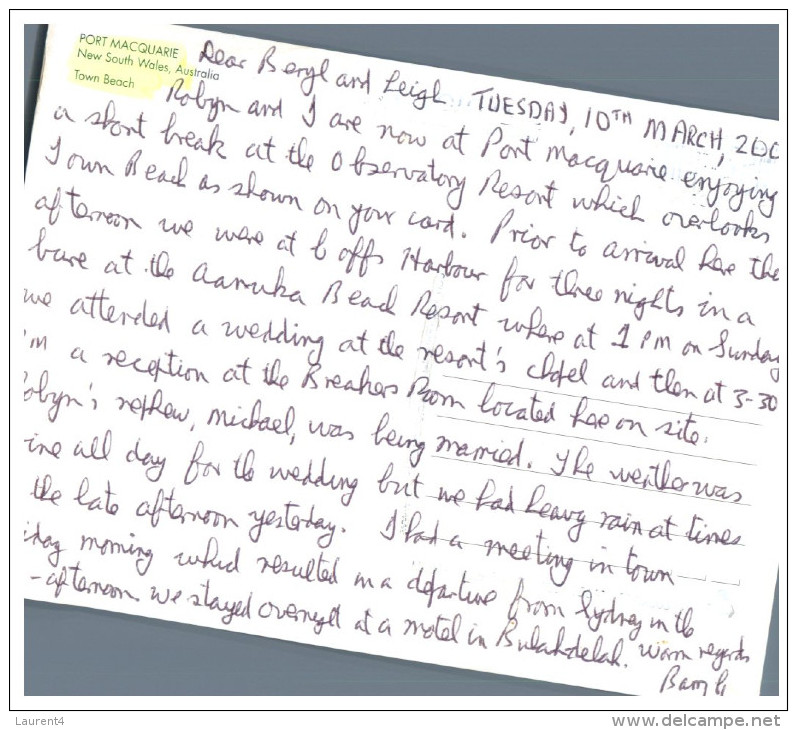 PORT MACQUARIE
New South Wales, Australia
Town Beach
Dear Beryl and Leigh TUESDAY, 10TH MARCH, 200
Robyn and I are now at Port Macquarie enjoying
a short break at the Observatory Resort which overlooks
Town Beach as shown on your card. Prior to arrival here the
afternoon we were at Coffs Harbour for three nights in a
bure at the Aanuka Beach Resort where at 1 pm on Sunday
we attended a wedding at the resort's chapel and then at 3-30
m a reception at the Breakers Room located here on site.
obyn's nephew, Michael, was being married. The weather was
ine all day for the wedding but we had heavy rain at times
the late afternoon yesterday. I had a meeting in town
iday morning which resulted in a departure from Sydney in the
-afternoon we stayed overnight at a motel in Bulahdelah. Warm regards
Barry G
Laurent4
www.delcampe.net